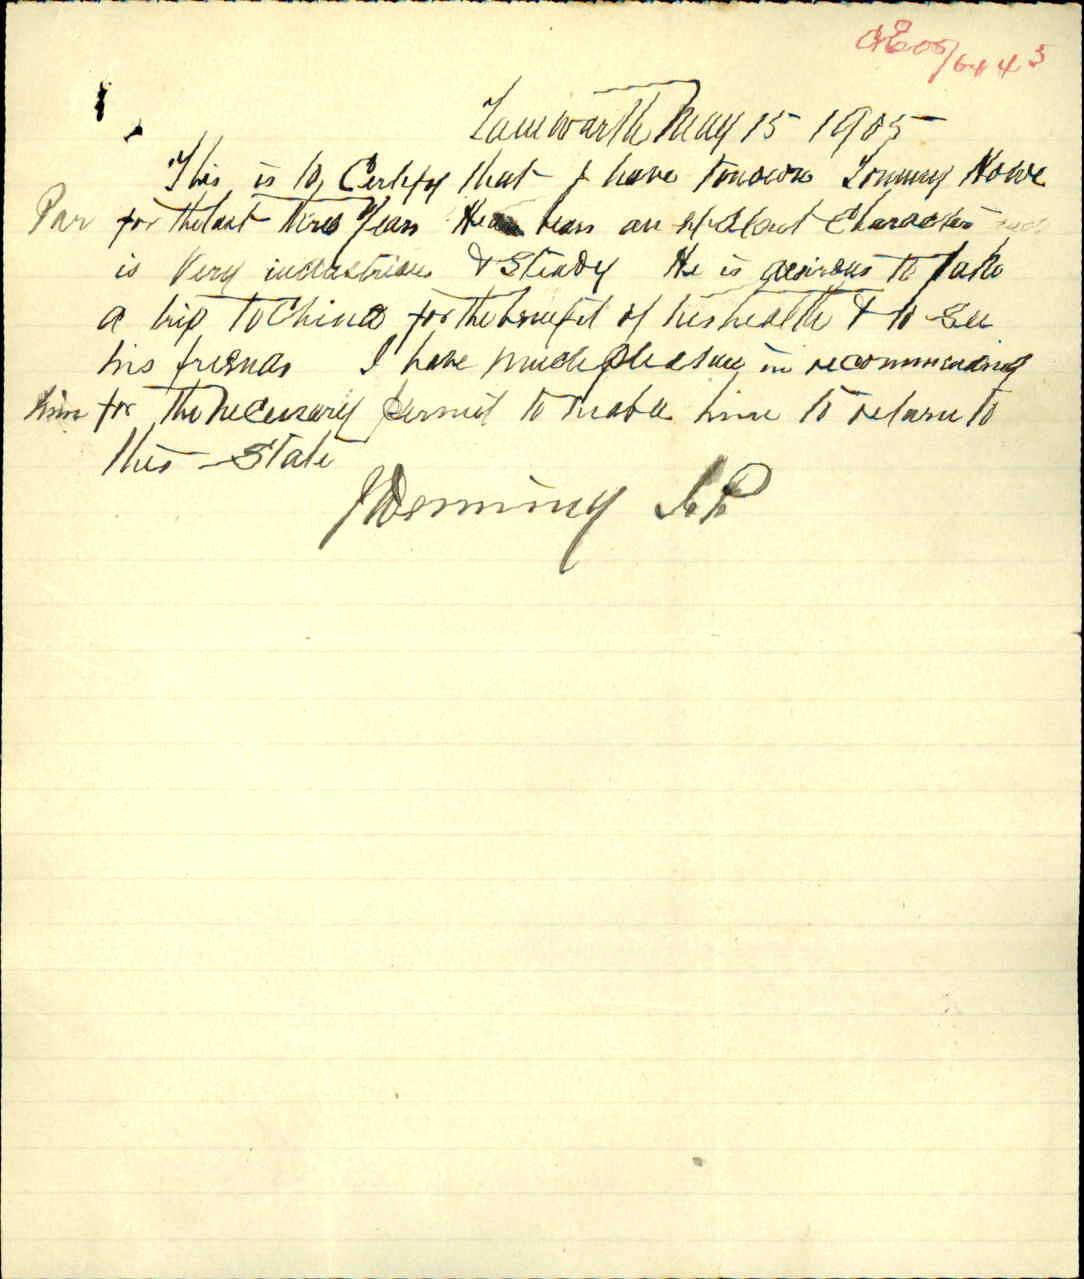 05/6443
Tamworth May 15 1905
This is to Certify that I have known Tommy Howe
for the last three Years He bears an excellent Character
is Very industrious & Steady He is desirous to take
a trip to China for the benefit of his health & to See
his friends I have much pleasure in recommending
him for the necessary permit to enable him to return to
this State
J Demming J.P